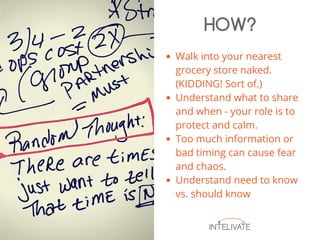 * Stra
3/4 - 2
ops cost 2X
(group
partnershi
= must
Random Thought:
There are times
just want to tell
That time is N
HOW?
• Walk into your nearest
grocery store naked.
(KIDDING! Sort of.)
• Understand what to share
and when - your role is to
protect and calm.
• Too much information or
bad timing can cause fear
and chaos.
• Understand need to know
vs. should know
INTELIVATE